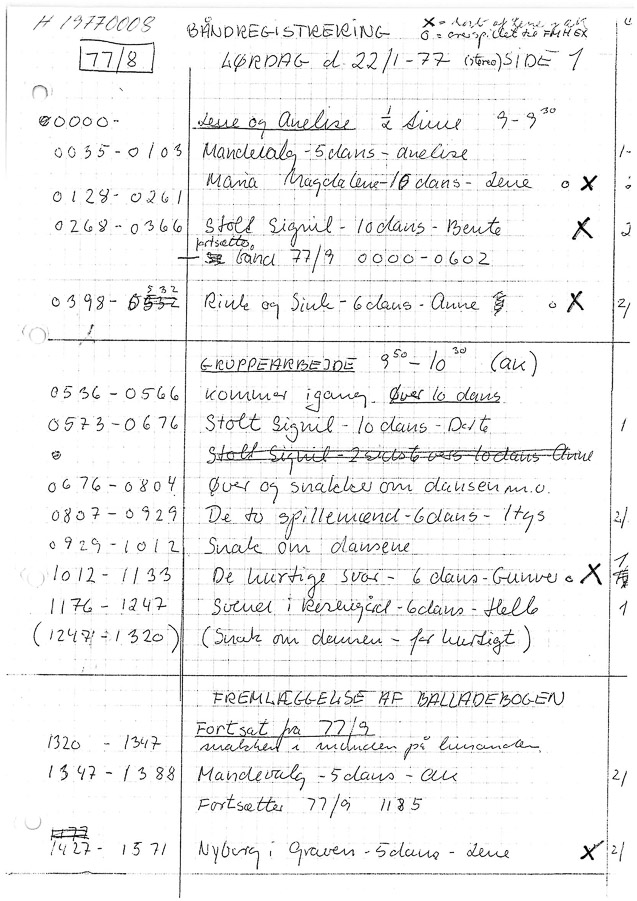 H 19770008
BÅNDREGISTRERING
77/8
LØRDAG d. 22/1-77 (stereo) SIDE 1
0000-
Lene og Anelise ½ Time 9-9 30
0035-0103 Mandevalg-5dans-anelise
0128-0261 Maria Magdalene-16 dans-Lene o X
0268-0366 Stolt Signil-10dans-Bente X
fortsætte
bånd 77/9 0000-0602
0398-0532 Rink og Sink-6dans-Anne o X
GRUPPEARBEJDE 9 50-10 30 (AK)
0536-0566 kommer igang. Øver 10 dans
0573-0676 Stolt Signil-10dans-Dorte
Stolt Signil-2 sidste vers 10dans-Anne
0676-0804 Øver og snakker om dansen m.v.
0807-0929 De to spillemænd-6dans-Thys
0929-1012 Snak om dansene
1012-1133 De hurtige svar-6 dans-Gunver o X
1176-1247 Svend i Rosengård-6dans-Helle
(1247-1320) (Snak om dansen-for hurtigt)
FREMLÆGGELSE AF BALLADEBOGEN
Fortsat fra 77/9
1320-1347 snakken i munden på hinanden
1347-1388 Mandevalg-5dans-AK
Fortsætter 77/9 1185
1427-1571 Nyborg i Graven-5dans-Lene X